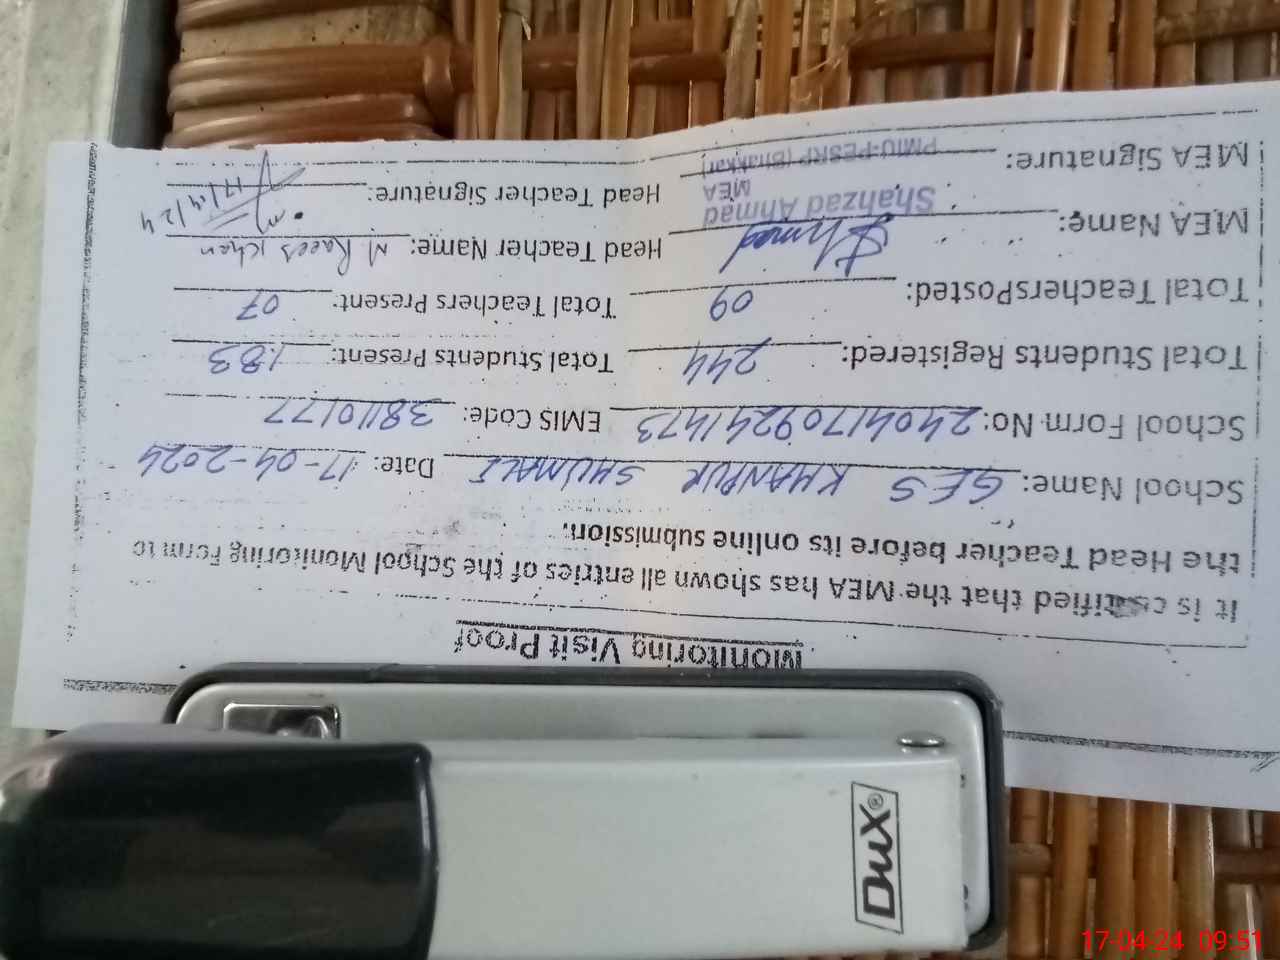 Monitoring Visit Proof
It is certified that the MEA has shown all entries of the School Monitoring Form to
the Head Teacher before its online submission.
School Name: GES KHANPUR SHUMALI Date: 17-04-2024
School Form No: 24041709241473 EMIS Code: 38110177
Total Students Registered: 244 Total Students Present: 183
Total TeachersPosted: 09 Total Teachers Present: 07
MEA Name: Ahmad Head Teacher Name: M Raees Khan
Shahzad Ahmad
MEA
PMIU-PESRP (Bhakkar)
MEA Signature: Head Teacher Signature:
17/4/24
DUX®
17-04-24 09:51